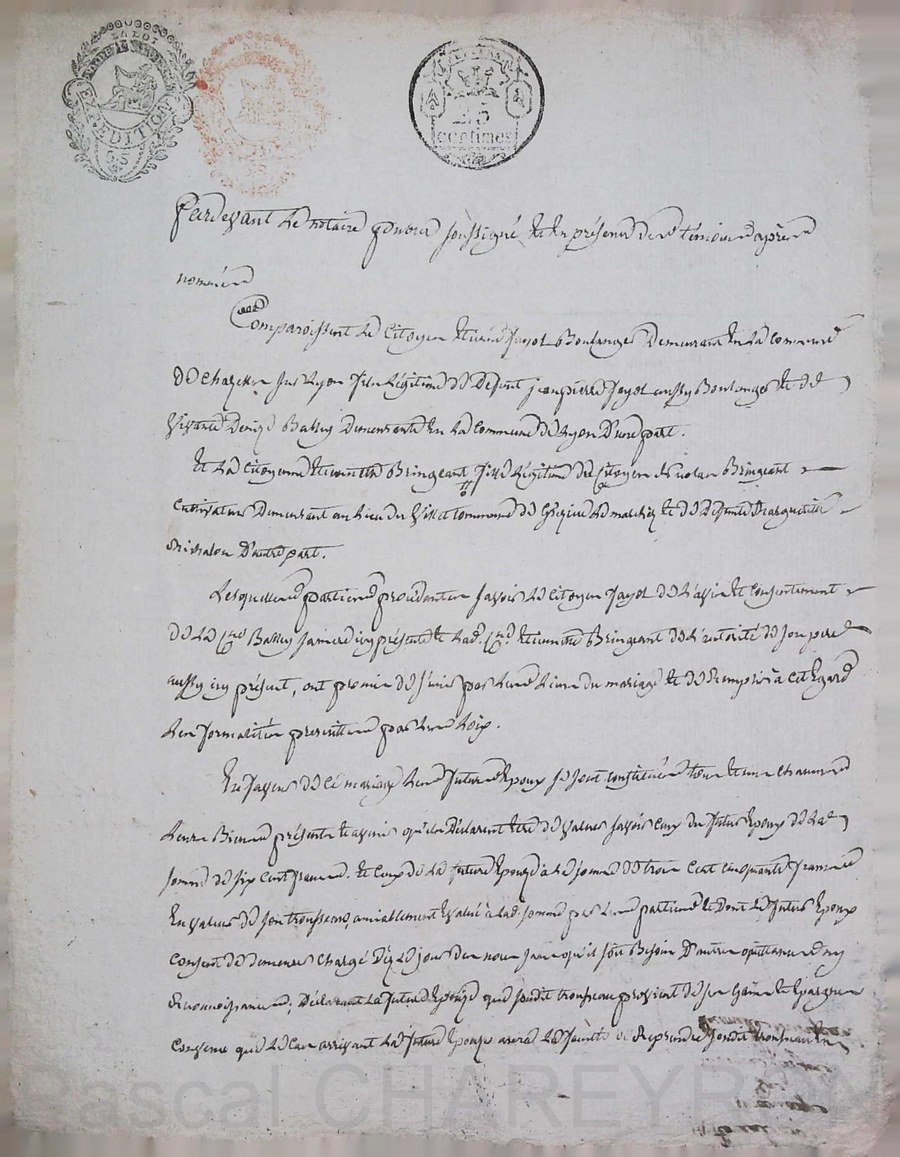 LA LOI
EXPEDITION
95
25
centimes
Pardevant Le notaire public soussigné, Et En présence des témoins après
nommés
Comparoissent Le Citoyen Etienne Jayol Boulanger Demeurant En La Commune
De Chazelles sur Lyon fils Légitime De Defunt jean pierre Jayol aussy Boulanger Et de
Vivante Denise Demeurante En La Commune de Lyon D'une part.
Et La Citoyenne Bringeant fille Légitime du Citoyen Nicolas Bringeant
Cultivateur Demeurant au Lieu du Commune de Et De Defunte Marguerite
D'autre part.
Lesquelles parties procédantes savoir Le Citoyen Jayol De L'avis Et Consentement
De La sa mere icy présente Et Lad. Bringeant De L'autorité De son pere
aussy icy présent, ont promis De s'unir par Les Liens du mariage Et De Remplir à Cet Egard
Les formalités prescrittes par Les Loix.
En faveur De Ce mariage Les futurs Epoux se sont constitués tous Et un chacun
Leurs Biens présents Et avenir qu'ils Déclarent Etre De valeur savoir Ceux du futur Epoux De La
somme De six cent francs. Et Ceux de La future Epouse De La somme De trois Cent cinquante francs
En valeur De son trousseau, amiablement Evalué à Lad. somme par Les parties Et Dont Le futur Epoux
Consent De Demeurer Chargé Dès Le jour Des noces sans qu'il soit Besoin D'autres quittances ny
Reconnoissances, Déclarant La future Epouse que sondit trousseau provient De ses Gains Et Epargnes
Convenu que Le Cas arrivant La future Epouse aura La faculté De Reprendre sondit trousseau En
Pascal CHAREYRON